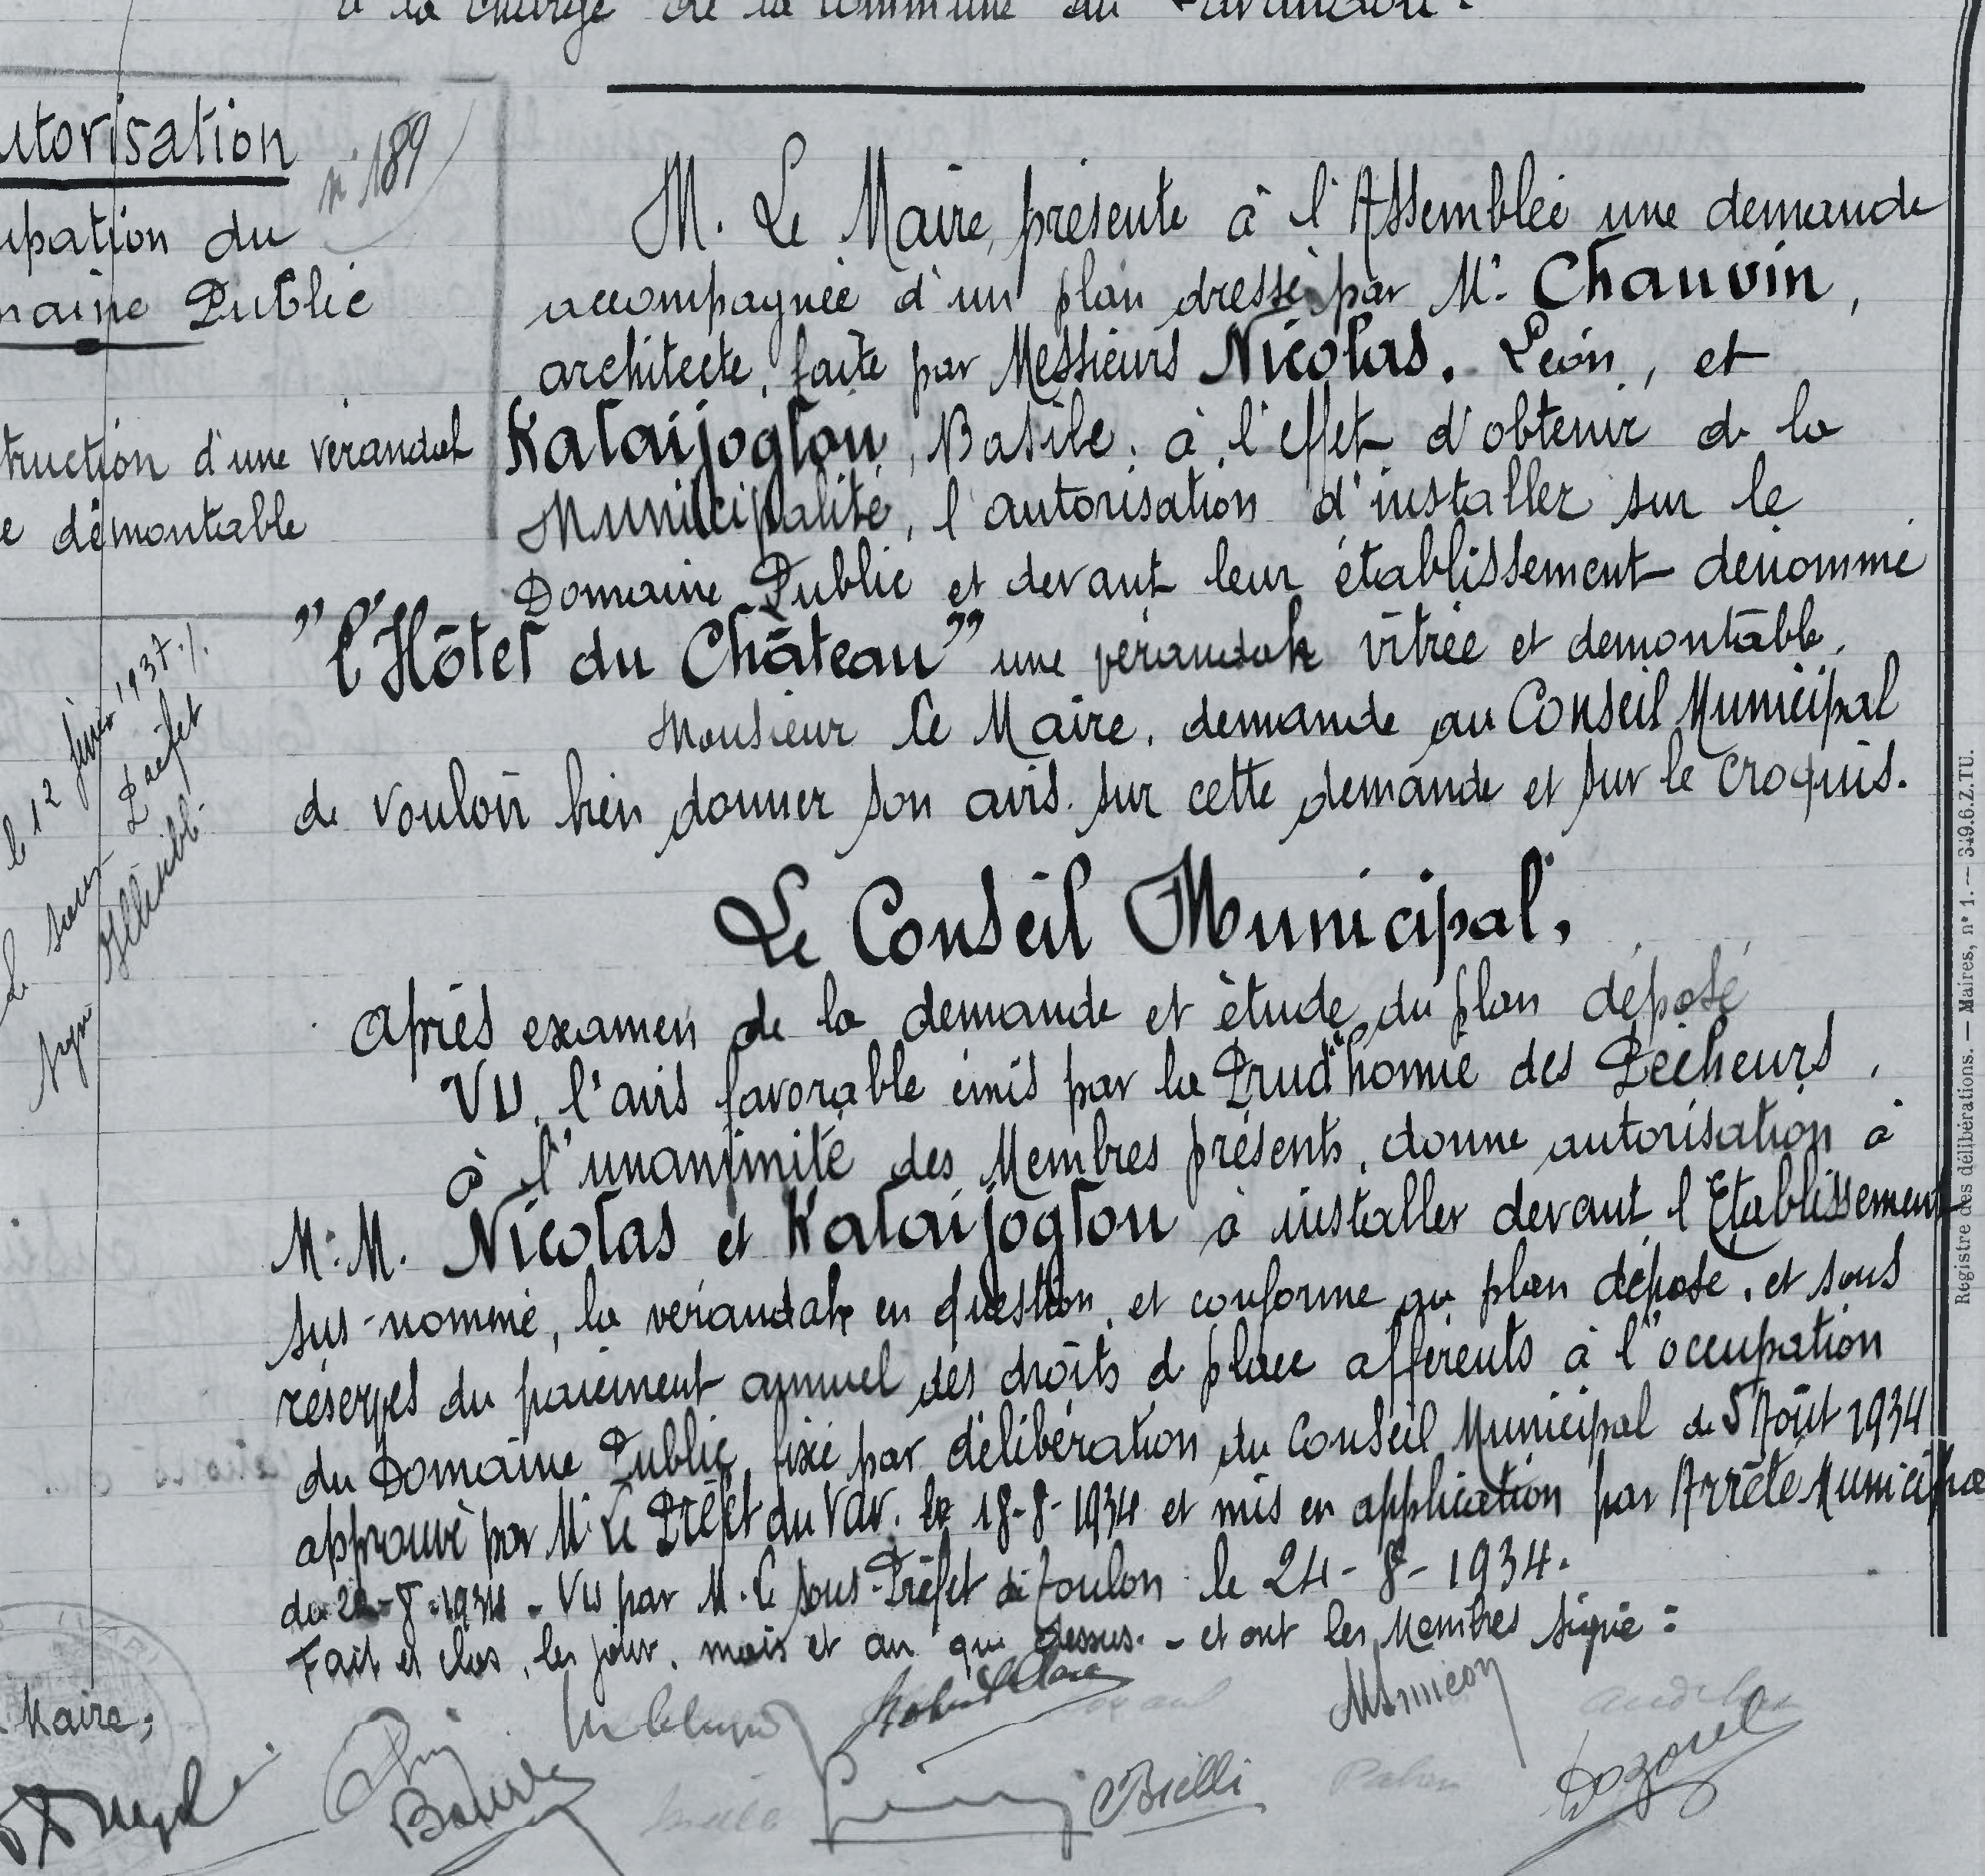 à la charge de la commune du Lavandou.
utorisation
n° 189
upation du
maine Public
truction d'une verandah
e démontable
M. Le Maire, présente à l'Assemblée une demande
accompagnée d'un plan dressé par Mr. Chauvin,
architecte, faite par Messieurs Nicolas. Léon, et
Kataijoglou, Basile. à l'effet d'obtenir de la
Municipalité, l'autorisation d'installer sur le
Domaine Public et devant leur établissement dénommé
"l'Hôtel du Château" une vérandah vitrée et démontable.
Monsieur le Maire, demande au Conseil Municipal
de vouloir bien donner son avis sur cette demande et sur le croquis.
le 12 1937
Le sous Préfet
Signé
Le Conseil Municipal,
après examen de la demande et étude du plan déposé
VU, l'avis favorable émis par la Prud'homie des Pêcheurs,
à l'unanimité des Membres présents, donne autorisation à
M.M. Nicolas et Kataijoglou à installer devant l'Etablissement
sus-nommé, la vérandah en question, et conforme au plan déposé, et sous
réserves du paiement annuel des droits de place afférents à l'occupation
du Domaine Public, fixé par délibération du Conseil Municipal de 5 Août 1934
approuvé par Mr Le Préfet du Var. le 18-8-1934 et mis en application par Arrêté Municipa
du 22-8-1934 - Vu par M. le Sous-Préfet de Toulon le 24-8-1934.
Fait et clos, les jour, mois et an que dessus. - et ont les Membres signé :
Maire;
Borelli
Registre des délibérations. — Maires, n° 1. — 349.6.Z.TU.